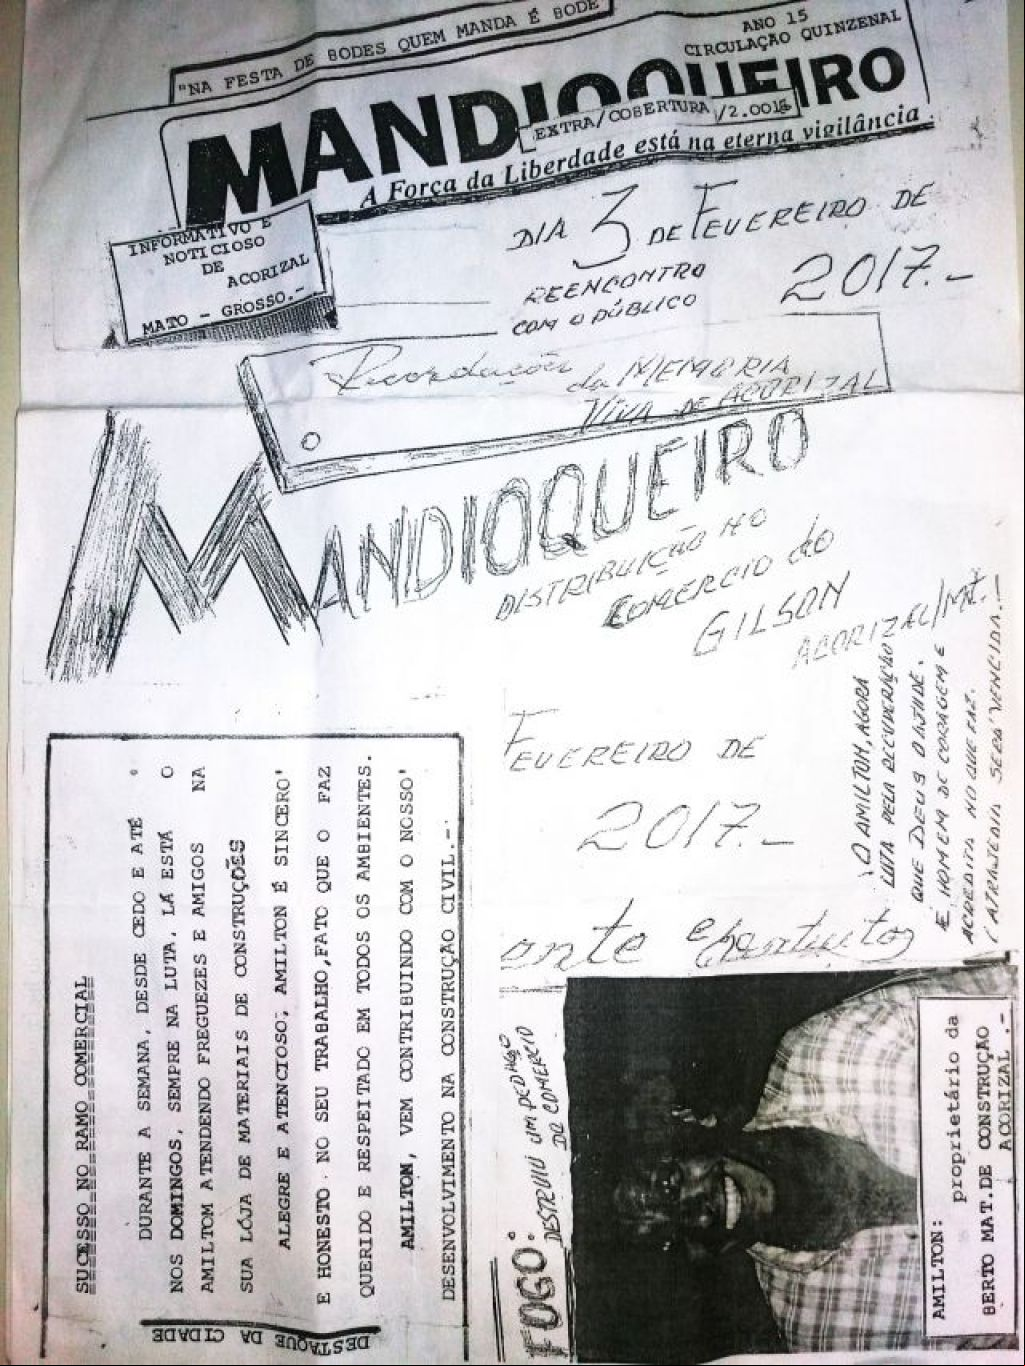 "NA FESTA DE BODES QUEM MANDA É BODE
ANO 15
CIRCULAÇÃO QUINZENAL
MANDIOQUEIRO
EXTRA/COBERTURA /2.001
A Força da Liberdade está na eterna vigilância
INFORMATIVO E
NOTICIOSO
DE
ACORIZAL
MATO - GROSSO.-
DIA 3 DE FEVEREIRO DE
2017.-
REENCONTRO
COM O PÚBLICO
Recordações da MEMORIA
VIVA DE ACORIZAL
MANDIOQUEIRO
DISTRIBUIÇÃO NO
COMERCIO do
GILSON
ACORIZAL/MT.
FEVEREIRO DE
2017.-
O AMILTON, AGORA
LUTA PELA RECUPERAÇÃO
QUE DEUS O AJUDE.
É HOMEM DE CORAGEM E
ACREDITA NO QUE FAZ.
(A TRAJEDIA SERÁ VENCIDA.-!
DESTAQUE DA CIDADE
SUCESSO NO RAMO COMERCIAL
DURANTE A SEMANA, DESDE CEDO E ATÉ '
NOS DOMINGOS, SEMPRE NA LUTA, LÁ ESTÁ O
AMILTOM ATENDENDO FREGUEZES E AMIGOS NA
SUA LÓJA DE MATERIAIS DE CONSTRUÇÕES
ALEGRE E ATENCIOSO; AMILTON É SINCERO'
E HONESTO NO SEU TRABALHO, FATO QUE O FAZ
QUERIDO E RESPEITADO EM TODOS OS AMBIENTES.
AMILTON, VEM CONTRIBUINDO COM O NOSSO'
DESENVOLVIMENTO NA CONSTRUÇÃO CIVIL.-
FOGO:
DESTRUIU UM PEDAÇO
DO COMERCIO
AMILTON:
proprietário da
BERTO MAT.DE CONSTRUÇÃO
ACORIZAL .-